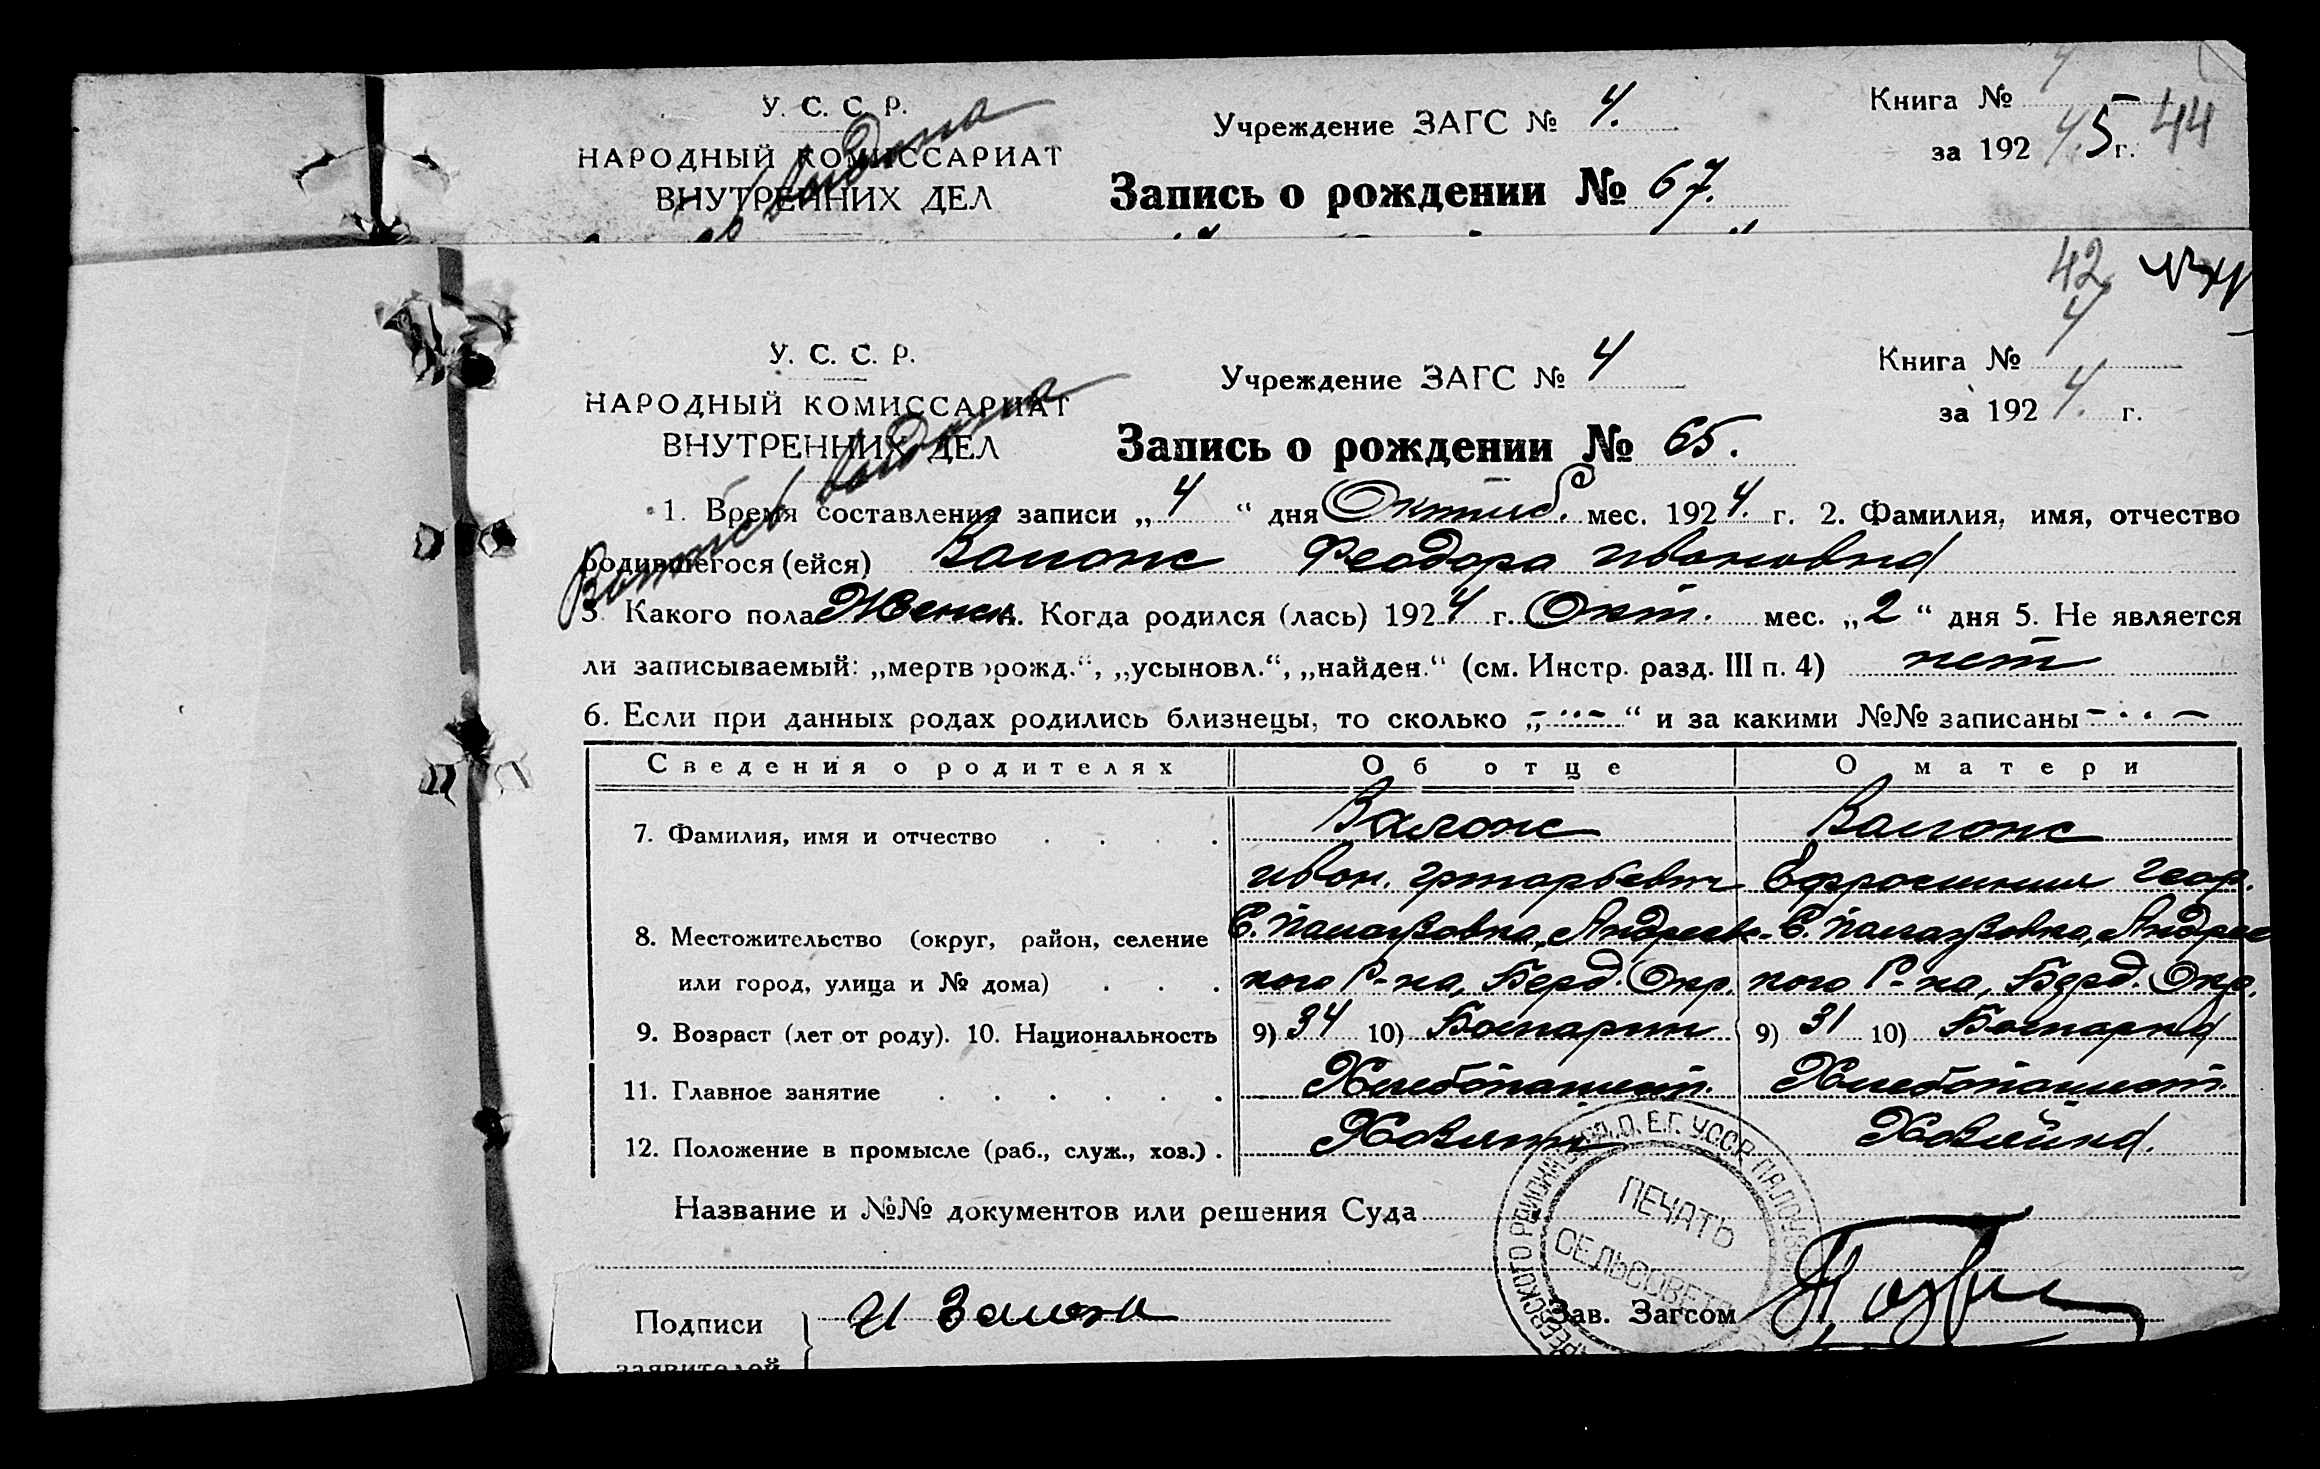 У. С. С. Р.
НАРОДНЫЙ КОМИССАРИАТ
ВНУТРЕННИХ ДЕЛ
Учреждение ЗАГС № 4.
Запись о рождении № 67.
Книга № 4
за 192 5 г. 44
42
У. С. С. Р.
НАРОДНЫЙ КОМИССАРИАТ
ВНУТРЕННИХ ДЕЛ
Выпись выдана
Учреждение ЗАГС № 4
Запись о рождении № 65.
Книга № 4
за 1924. г.
1. Время составления записи „ 4 “ дня Октяб. мес. 1924. г. 2. Фамилия, имя, отчество
родившегося (ейся) Феодора Ивановна
3. Какого пола Женск. 4. Когда родился (лась) 1924 г. Окт. мес. „ 2 “ дня 5. Не является
ли записываемый: „мертворожд.“, „усыновл.“, „найден.“ (см. Инстр. разд. III п. 4) нет
6. Если при данных родах родились близнецы, то сколько „ - “ и за какими №№ записаны -
Сведения о родителях Об отце О матери
7. Фамилия, имя и отчество . . . .
Иван. Ефросиния Геор.
8. Местожительство (округ, район, селение
или город, улица и № дома) . . . кого Р-на, Берд. Окр. кого Р-на, Берд. Окр.
9. Возраст (лет от роду). 10. Национальность 9) 34 10) Болгарин 9) 31 10) Болгарка
11. Главное занятие . . . . . . Хлебопашест. Хлебопашест.
12. Положение в промысле (раб., служ., хоз.) . Хозяин Хозяйка.
Название и №№ документов или решения Суда
ПЕЧАТЬ
СЕЛЬСОВЕТА
Подписи И Зав. Загсом
заявителей